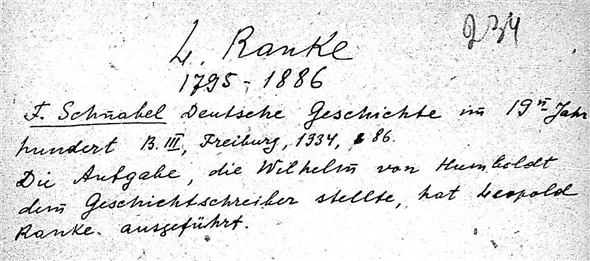 234
L. Ranke
1795-1886
F. Schnabel Deutsche Geschichte im 19n Jahr
hundert B. III, Freiburg, 1934, 86.
Die Aufgabe, die Wilhelm von Humboldt
dem Geschichtschreiber stellte, hat Leopold
Ranke ausgeführt.